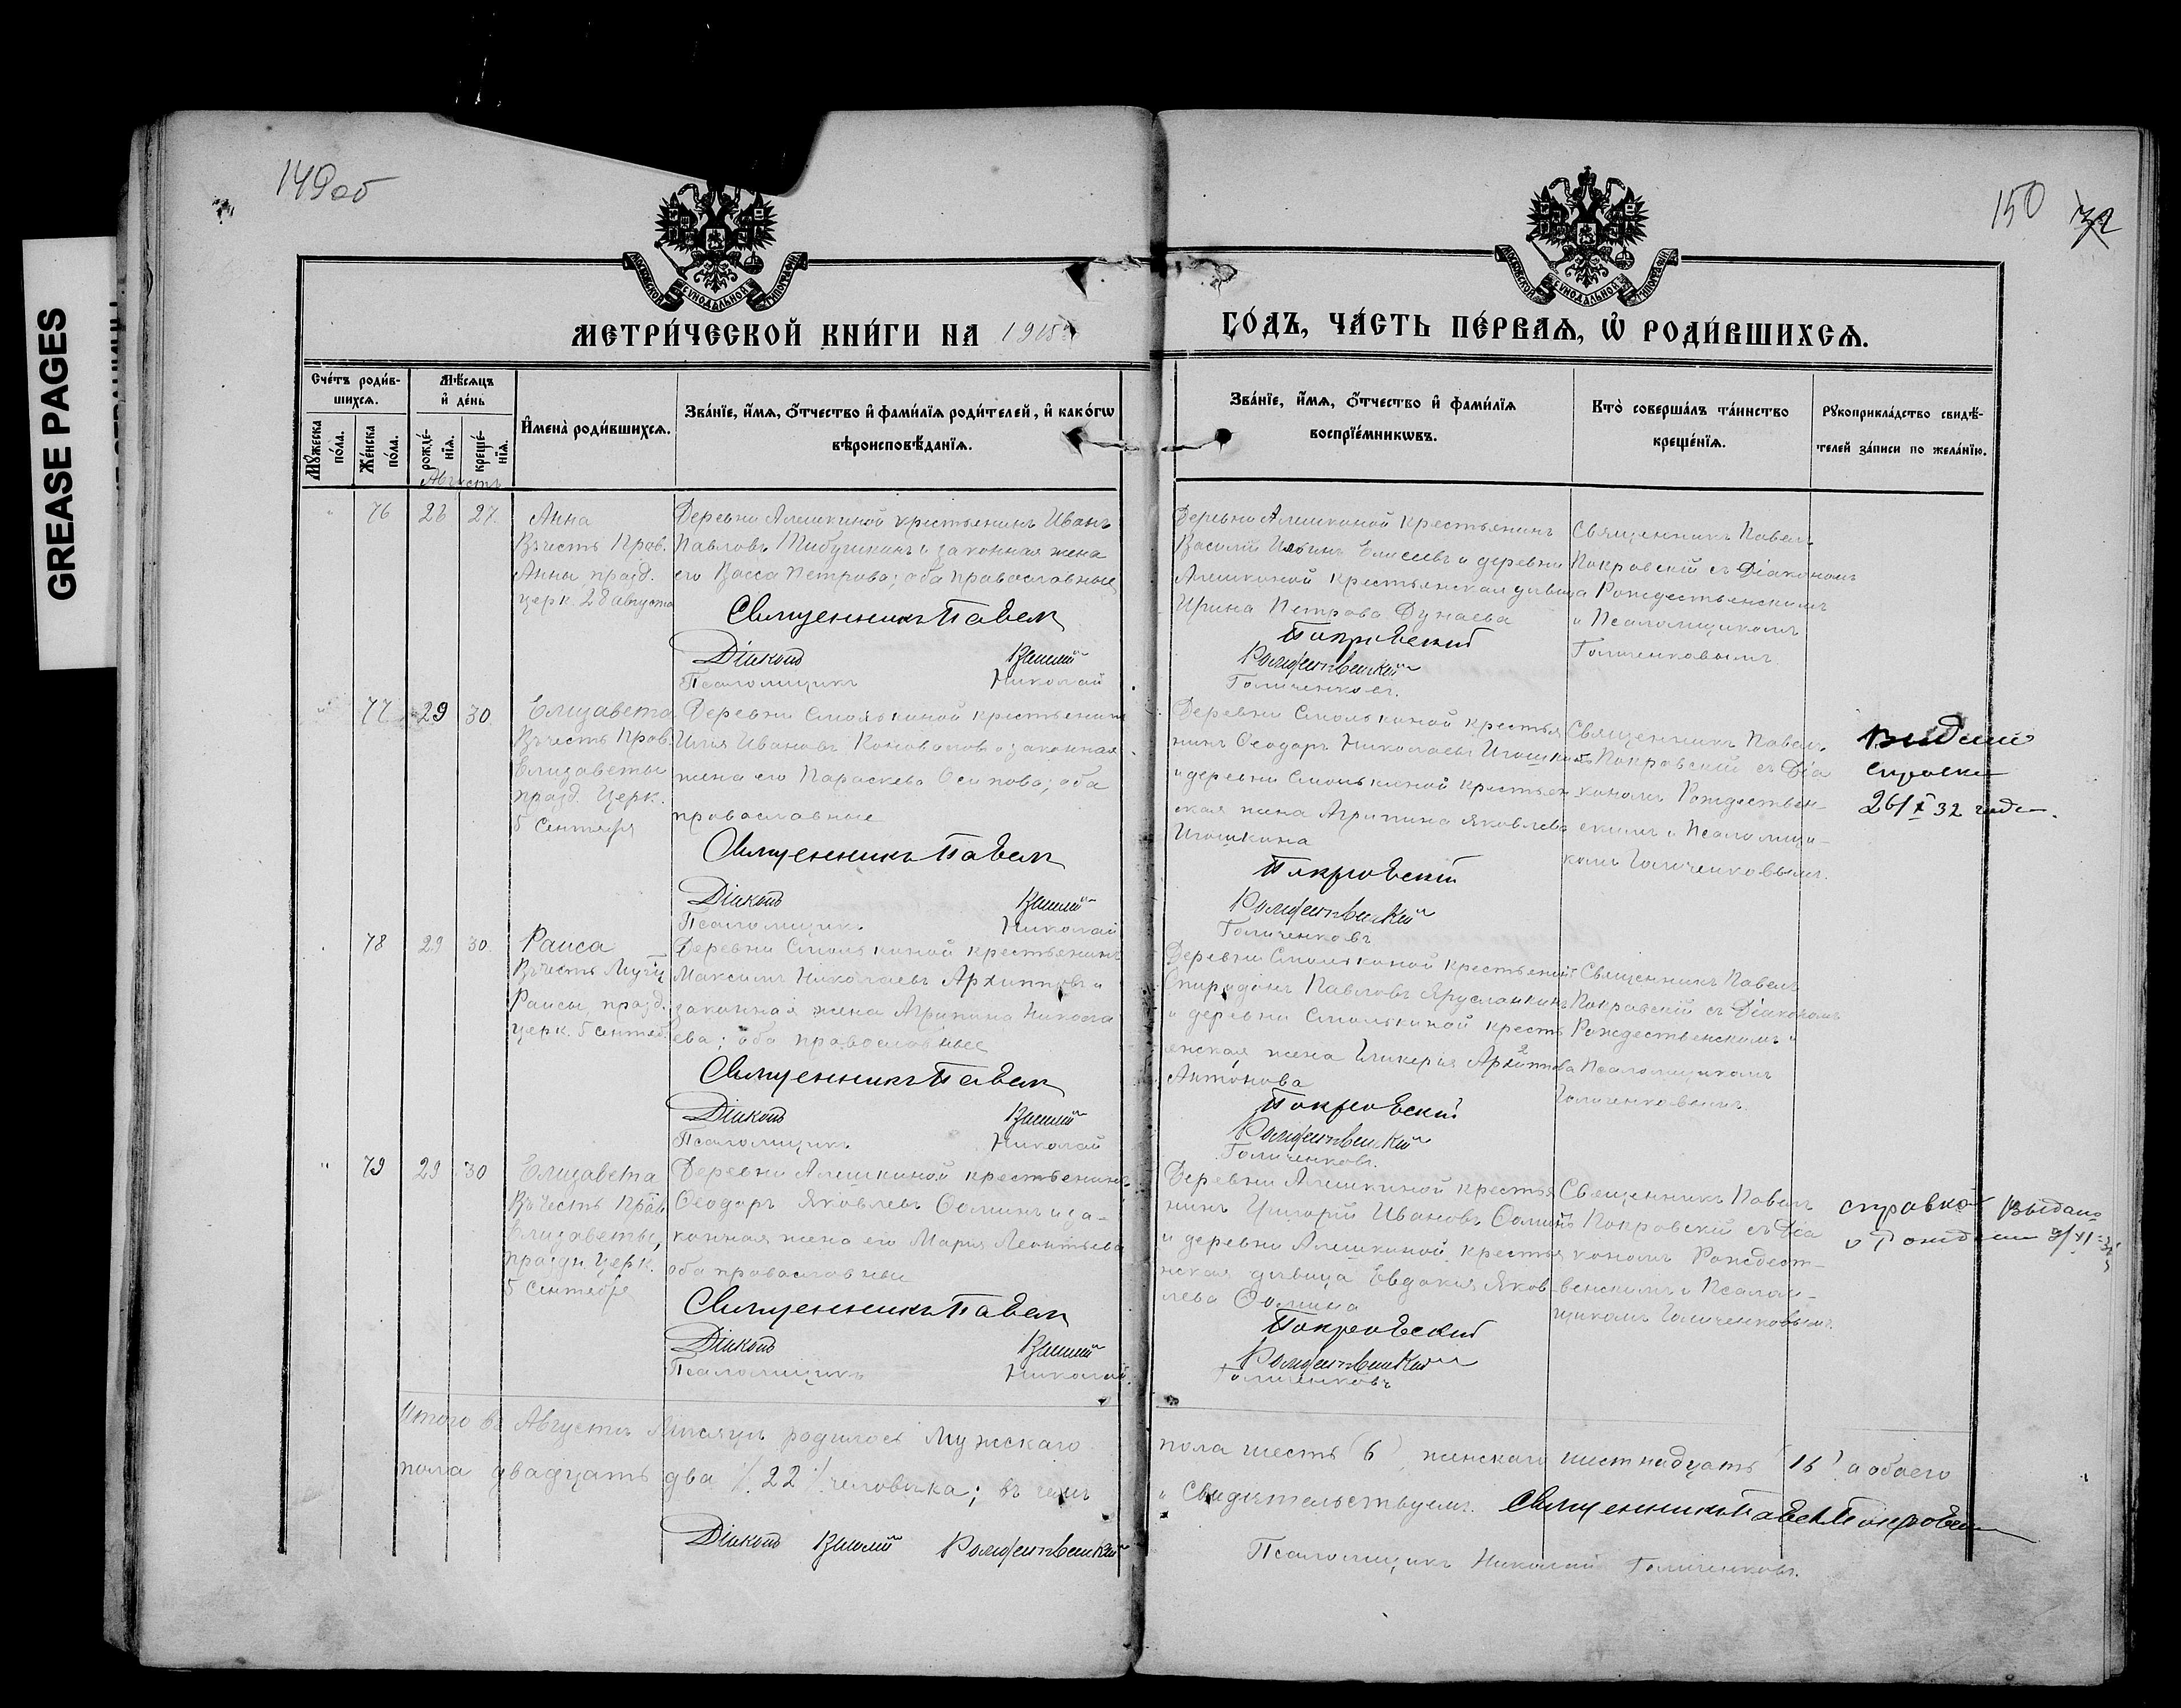 GREASE PAGES
149об
150
72
МОСКОВСКОЙ СѴНОДАЛЬНОЙ ТИПОГРАФІИ
МОСКОВСКОЙ СѴНОДАЛЬНОЙ ТИПОГРАФІИ
МЕТРИ́ЧЕСКОЙ КНИ́ГИ НА 1915
ГО́ДЪ, ЧА́СТЬ ПЕ́РВАѦ, Ѡ҆ РОДИ́ВШИХСѦ.
Сче́тъ роди́в-
шихсѧ.
Мꙋ́жеска
по́ла.
Же́нска
по́ла.
Мѣ́сѧцъ
и҆ де́нь
рожде́-
нїѧ.
креще́-
нїѧ.
Августъ
И҆мена̀ роди́вшихсѧ.
Зва́нїе, и҆́мѧ, ѻ҆́тчество и҆ фами́лїѧ роди́телей, и҆ како́гѡ
вѣроисповѣ́данїѧ.
Зва́нїе, и҆́мѧ, ѻ҆́тчество и҆ фами́лїѧ
воспрїе́мникѡвъ.
Кто̀ соверша́лъ та́инство
креще́нїѧ.
Рꙋкоприкла́дство свидѣ́-
телей за́писи по жела́нїю.
76 26 27.
Анна
Въ честь Прав.
Анны празд.
церк. 28 августа
Деревни Алешкиной крестьянинъ Иванъ
Павловъ и законная жена
его Васса Петрова; оба православные
Священникъ Павелъ
Діаконъ Василій
Псаломщикъ Николай
Деревни Алешкиной крестьянинъ
Василій Ильинъ Елисеевъ и деревни
Алешкиной крестьянская дѣвица
Ирина Петрова Дунаева
Покровскій
Рождественскій
Голиченковъ.
Священникъ Павелъ
Покровскій съ Діакономъ
Рождественскимъ
и Псаломщикомъ
Голиченковымъ
77 29 30
Елизавета
Въ честь Прав.
Елизаветы
празд. церк.
5 Сентября
Деревни Смолькиной крестьянинъ
Илья Ивановъ Коноваловъ и законная
жена его Параскева Осипова; оба
православные
Священникъ Павелъ
Діаконъ Василій
Псаломщикъ Николай
Деревни Смолькиной крестья
нинъ Ѳеодоръ Николаевъ Игошкинъ
и деревни Смолькиной крестьян
ская жена Агрипина Яковлева
Игошкина
Покровскій
Рождественскій
Голиченковъ
Священникъ Павелъ
Покровскій съ Діа
кономъ Рождествен-
скимъ и Псаломщи-
комъ Голиченковымъ.
Выдана
справка
26/X 32 года.
78 29 30
Раиса
Въ честь Мучц
Раисы, празд.
церк. 5 Сентяб.
Деревни Смолькиной крестьянинъ
Максимъ Николаевъ Архипповъ и
законная жена Агрипина Никола
ева; оба православные
Священникъ Павелъ
Діаконъ Василій
Псаломщикъ Николай
Деревни Смолькиной крестьянинъ
Спиридонъ Павловъ Ярусланкинъ
и деревни Смолькиной кресть
янская жена Гликерія Архиппова
Антонова
Покровскій
Рождественскій
Голиченковъ.
Священникъ Павелъ
Покровскій съ Діакономъ
Рождественскимъ и
Псаломщикомъ
Голиченковымъ.
79 29 30
Елизавета
Въ честь Прав.
Елизаветы,
праздн. церк.
5 Сентября
Деревни Алешкиной крестьянинъ
Ѳеодоръ Яковлевъ Ѳоминъ и за-
конная жена его Марія Леонтьева
оба православные
Священникъ Павелъ
Діаконъ Василій
Псаломщикъ Николай.
Деревни Алешкиной крестья
нинъ Григорій Ивановъ Ѳоминъ
и деревни Алешкиной крестья
нская дѣвица Евдокія Яков
лева Ѳомина
Покровскій
Рождественскій
Голиченковъ
Священникъ Павелъ
Покровскій съ Діа
кономъ Рождест-
венскимъ и Псалом-
щикомъ Голиченковымъ.
справка Выдано
Итого въ Августѣ Мѣсяцѣ родилось Мужскаго
пола шесть (6), женскаго шестнадцать (16) а обоего
пола двадцать два /22/ человѣка; въ чемъ
и Свидѣтельствуемъ. Священникъ Павелъ Покровскій
Діаконъ Василій Рождественскій
Псаломщикъ Николай Голиченковъ.